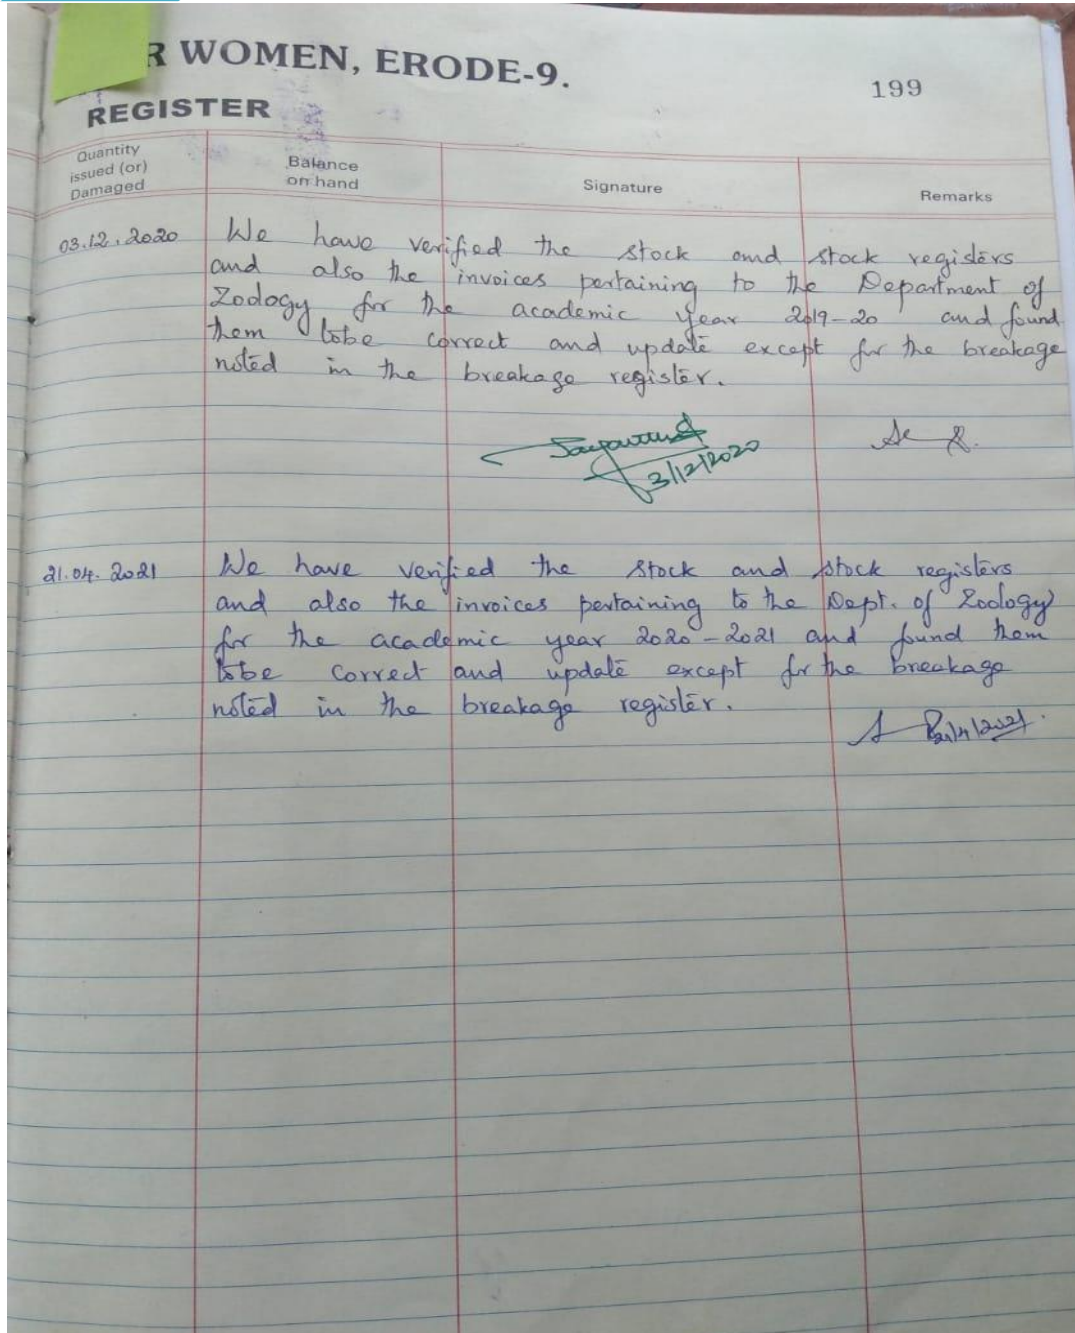 R WOMEN, ERODE-9.
199
REGISTER
Quantity
issued (or)
Damaged
Balance
on hand
Signature
Remarks
03.12.2020 We have verified the stock and stock registers
and also the invoices pertaining to the Department of
Zoology for the academic year 2019-20 and found
them tobe correct and update except for the breakage
noted in the breakage register.
3/12/2020
21.04.2021 We have verified the stock and stock registers
and also the invoices pertaining to the Dept. of Zoology
for the academic year 2020-2021 and found them
tobe correct and update except for the breakage
noted in the breakage register.
21/4/2021.